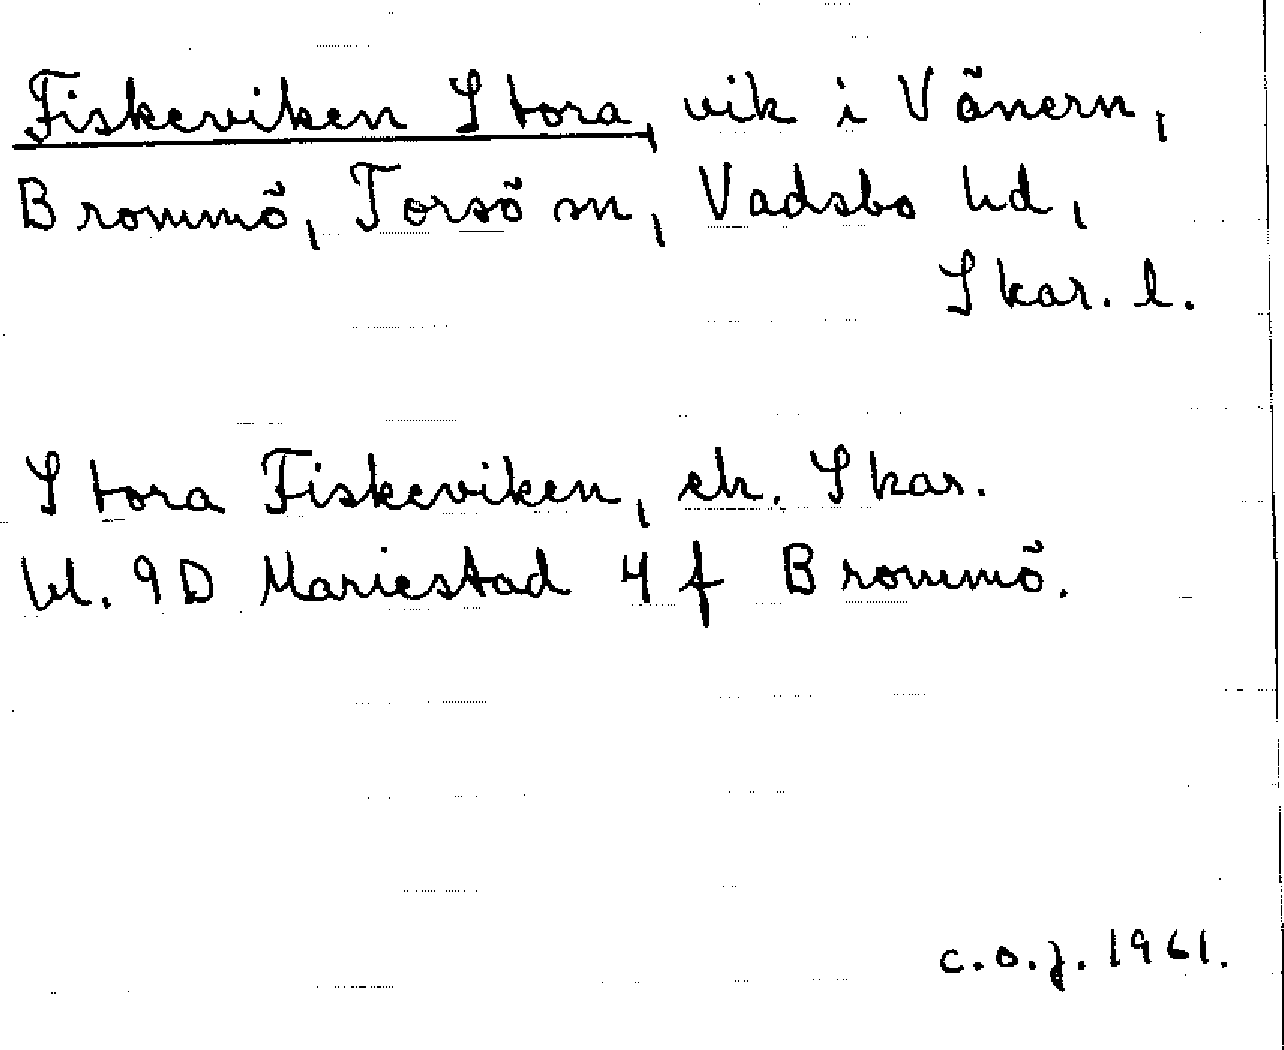 Fiskeviken Stora, vik i Vänern,
Brommö, Torsö sn, Vadsbo hd,
Skar. l.
Stora Fiskeviken, ek. Skar.
bl. 9D Mariestad 4f Brommö.
c.o.j. 1961.